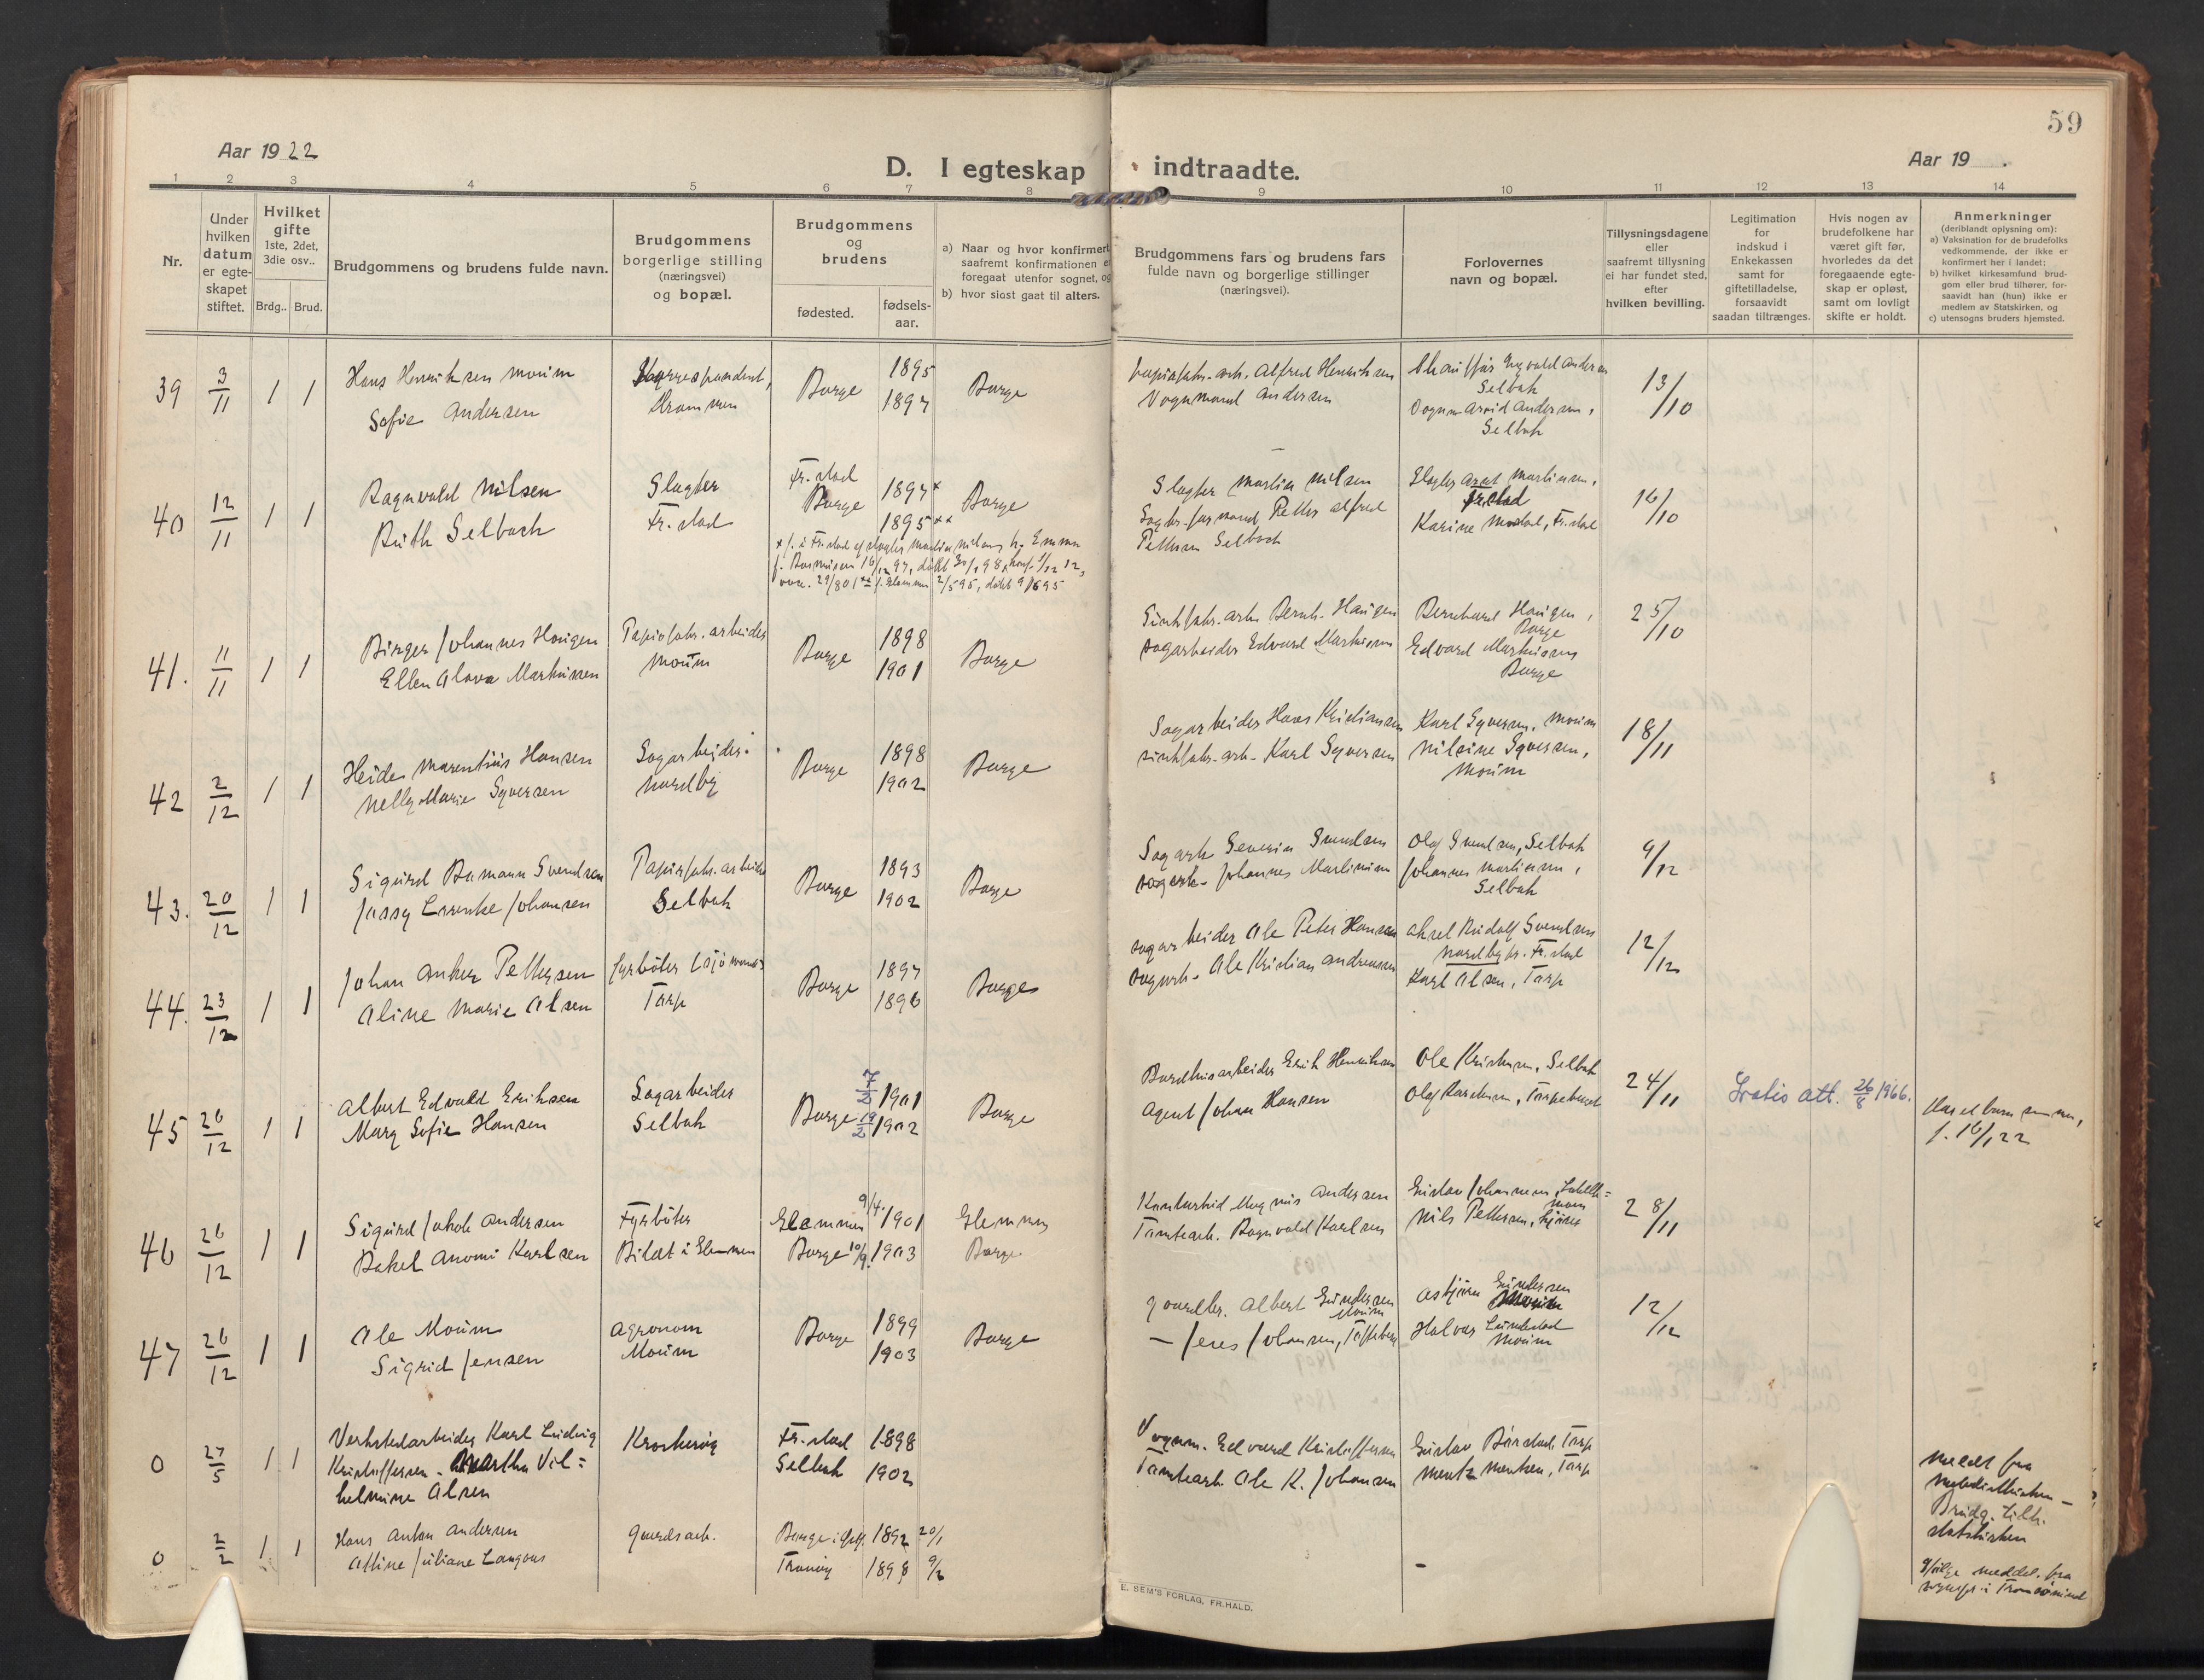 59
Aar 1922
D. I egteskap indtraadte.
Aar 19 .
1 2 3 4 5 6 7 8 9 10 11 12 13 14
Nr.
Under
hvilken
datum
er egte-
skapet
stiftet.
Hvilket
gifte
1ste, 2det,
3die osv..
Brdg.. Brud.
Brudgommens og brudens fulde navn.
Brudgommens
borgerlige stilling
(næringsvei)
og bopæl.
Brudgommens
og
brudens
fødested.
fødsels-
aar.
a) Naar og hvor konfirmert
saafremt konfirmationen
foregaat utenfor sognet, og
b) hvor sidst gaat til alters.
Brudgommens fars og brudens fars
fulde navn og borgerlige stillinger
(næringsvei).
Forlovernes
navn og bopæl.
Tillysningsdagene
eller
saafremt tillysning
ei har fundet sted,
efter
hvilken bevilling.
Legitimation
for
indskud i
Enkekassen
samt for
giftetilladelse,
forsaavidt
saadan tiltrænges.
Hvis nogen av
brudefolkene har
været gift før,
hvorledes da det
foregaaende egte-
skap er opløst,
samt om lovligt
skifte er holdt.
Anmerkninger
(deriblandt oplysning om):
a) Vaksination for de brudefolks
vedkommende, der ikke er
konfirmert her i landet;
b) hvilket kirkesamfund brud-
gom eller brud tilhører, for-
saavidt han (hun) ikke er
medlem av Statskirken, og
c) utensogns bruders hjemsted.
39 3/11 1 1
Hans Henriksen Moum
Sofie Andersen
Korrespondent,
Borge
1895
1897
Borge
papirfabr. arb. Alfred Henriksen
Vognmand Andersen
Chauffør Ingvald Andersen
Selbak
Vognm Arvid Andersen,
Selbak
13/10
40 12/11 1 1
Ragnvald Nilsen
Ruth Selbach
Slagter
Fr.stad
Fr.stad
Borge
1897 x
1895 xx
Borge
x f. i Fr.stad af slagter Martin Nilsens h. Emma
f. Rasmussen 16/12 97, døbt 30/1 98, konf. 1/12 12,
vac. 29/8 01 xx f. Glemmen 2/5 95, døbt 9/6 95
Slagter Martin Nilsen
Sagbr. formand Petter Alfred
Pettersen Selbach
Slagter Martinsen,
Fr.stad
Karine , Fr.stad
16/10
41. 11/11 1 1
Birger Johannes Haugen
Ellen Alova Markussen
Papirfabr. arbeider
Moum
Borge
1898
1901
Borge
Sinkfabr. arb. Bernh. Haugen
sagarbeider Edvard Markussen
Bernhard Haugen,
Borge
Edvard Markussen
Borge
25/10
42 2/12 1 1
Marentius Hansen
Nelly Marie Syversen
Sagarbeider
Nordby
Borge
1898
1902
Borge
Sagarbeider Hans Kristiansen
sinkfabr. arb. Karl Syversen
Karl Syversen, Moum
Nilsine Syversen,
Moum
18/11
43. 20/12 1 1
Sigurd Svendsen
Johansen
Papirfabr. arbeider
Selbak
Borge
1893
1902
Borge
Sagarb. Severin Svendsen
sagarb. Johannes Martinsen
Olaf Svendsen, Selbak
Johannes Martinsen,
Selbak
9/12
44. 23/12 1 1
Johan Anker Pettersen
Aline Marie Olsen
Fyrbøter (sjømand)
Torp
Borge
1897
1896
Borge
sagarbeider Ole Peter Hansen
sagarb. Ole Kristian Andreassen
Aksel Rudolf Svendsen
Nordby pr. Fr.stad
Karl Olsen, Torp
12/12
45 26/12 1 1
Albert Edvald Eriksen
Mary Sofie Hansen
Sagarbeider
Selbak
Borge
7/2 1901
19/2 1902
Borge
Bordhusarbeider Erik Henriksen
Agent Johan Hansen
Ole Kristensen, Selbak
Olaf Karelsen,
24/11
Gratis att. 26/8 1966.
Har et barn sammen,
f. 16/1 22
46 26/12 1 1
Sigurd Jakob Andersen
Rakel Karlsen
Fyrbøter
Bilæt i Glemmen
Glemmen 9/4. 1901
Borge 10/9. 1903
Glemmen
Borge
Kontorbud Magnus Andersen
Tomtearb. Ragnvald Karlsen
Gustav Johannesen,
Nils Pettersen,
28/11
47 26/12 1 1
Ole Moum
Sigrid Jensen
Agronom
Moum
Borge
1899
1903
Borge
Gaardbr. Albert Gundersen
Moum
— Jens Johansen,
Asbjørn Gundersen
Moum
Halvor Lundestad
Moum
12/12
0 27/5 1 1
Verkstedarbeider Karl Ludvig
Kristoffersen - Martha Vil=
helmine Olsen
Krosherøy
Fr.stad
Selbak
1898
1902
Vognm. Edvard Kristoffersen
Tomtearb. Ole K. Johansen
Gustav Torp
Mentz Mentzen, Torp
Meldt fra
Metodistkirken —
Brudg. tilh.
statskirken
0 2/2 1 1
Hans Anton Andersen
Alfine Juliane Langaas
Gaardsarb.
Borge i Østf. 1892 20/1
Tranøy 1898
Ifølge meddel. fra
sognepr. i
E. SEM'S FORLAG, FR.HALD.